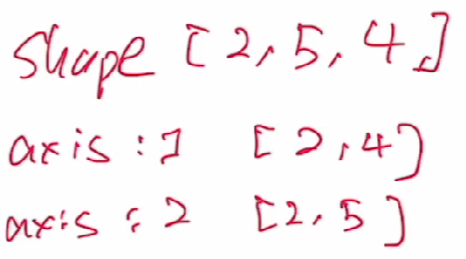 shape [2,5,4]
axis : 1 [2,4]
axis : 2 [2,5]